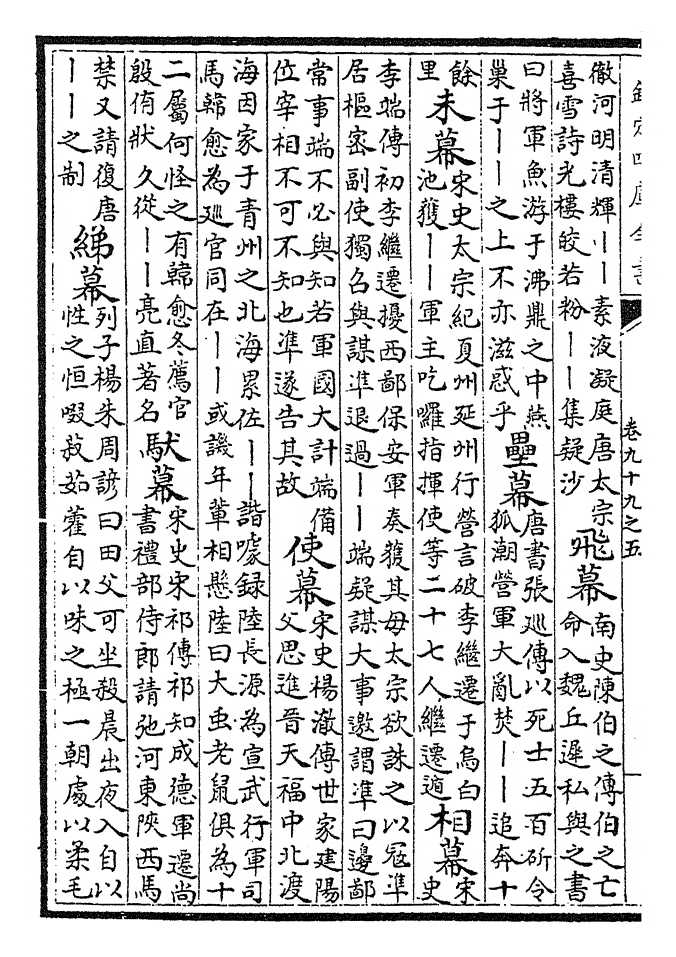 欽定四庫全書
卷九十九之五
徹河明清輝丨丨素液凝庭唐太宗
喜雪詩光樓皎若粉丨丨集疑沙
飛幕
南史陳伯之傳伯之亡
命入魏丘遲私與之書
曰將軍魚游于沸鼎之中燕
巢于丨丨之上不亦滋惑乎
壘幕
唐書張廵傳以死士五百斫令
狐潮營軍大亂焚丨丨追奔十
餘
里
未幕
宋史太宗紀夏州延州行營言破李繼遷于烏白
池獲丨丨軍主吃囉指揮使等二十七人繼遷遁
相幕
宋
史
李端傳初李繼遷擾西鄙保安軍奏獲其母太宗欲誅之以冦準
居樞密副使獨召與謀準退過丨丨端疑謀大事邀謂準曰邊鄙
常事端不必與知若軍國大計端備
位宰相不可不知也準遂告其故
使幕
宋史楊澈傳世家建陽
父思進晉天福中北渡
海因家于青州之北海累佐丨丨諧噱録陸長源為宣武行軍司
馬韓愈為廵官同在丨丨或譏年輩相懸陸曰大虫老鼠俱為十
二屬何怪之有韓愈冬薦官
殷侑狀久從丨丨亮直著名
馱幕
宋史宋祁傳祁知成德軍遷尚
書禮部侍郎請弛河東陜西馬
禁又請復唐
丨丨之制
綈幕
列子楊朱周諺曰田父可坐殺晨出夜入自以
性之恒啜菽茹藿自以味之極一朝處以柔毛